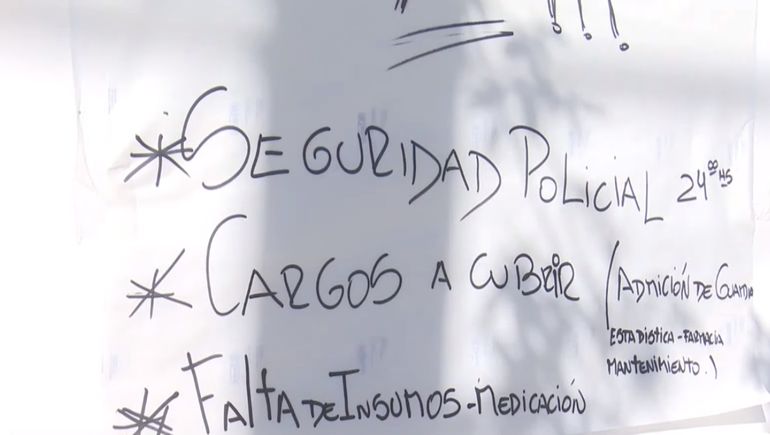 !!!
* SEGURIDAD POLICIAL 24⁰⁰ HS
* CARGOS A CUBRIR (ADMICIÓN DE GUARDIA
ESTADISTICA - FARMACIA
MANTENIMIENTO.)
* FALTA DE INSUMOS - MEDICACIÓN